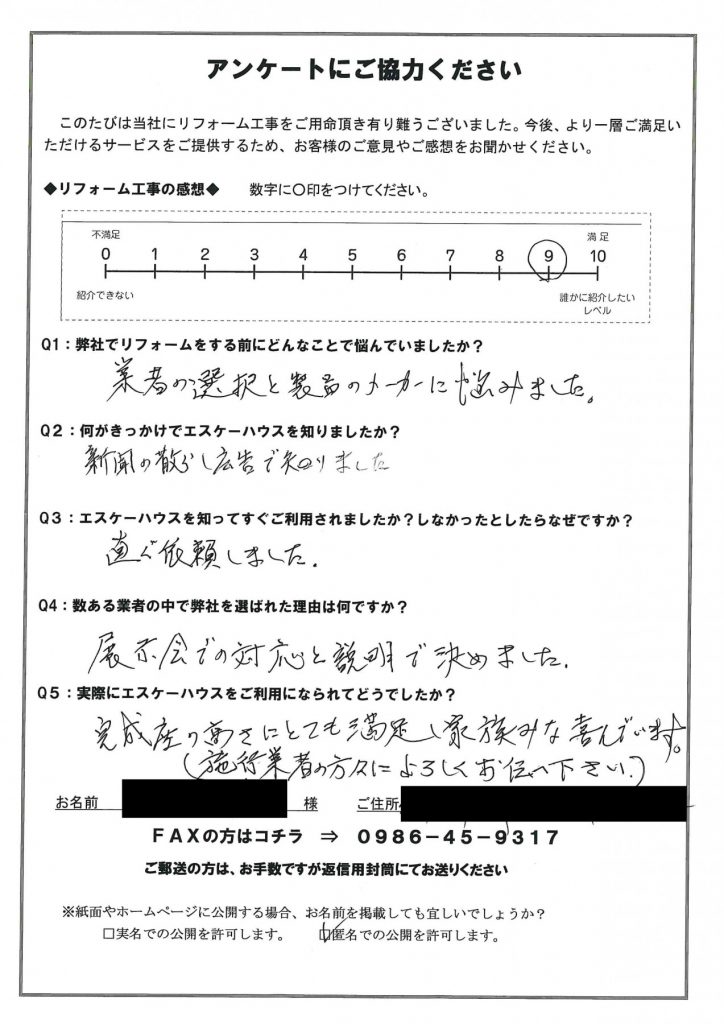 アンケートにご協力ください
このたびは当社にリフォーム工事をご用命頂き有り難うございました。今後、より一層ご満足い
ただけるサービスをご提供するため、お客様のご意見やご感想をお聞かせください。
◆リフォーム工事の感想◆　数字に〇印をつけてください。
不満足 満足
0 1 2 3 4 5 6 7 8 9 10
紹介できない 誰かに紹介したい
レベル
Q1：弊社でリフォームをする前にどんなことで悩んでいましたか？
業者の選択と製品のメーカーに悩みました。
Q2：何がきっかけでエスケーハウスを知りましたか？
新聞の散らし広告で知りました
Q3：エスケーハウスを知ってすぐご利用されましたか？しなかったとしたらなぜですか？
直ぐ依頼しました.
Q4：数ある業者の中で弊社を選ばれた理由は何ですか？
展示会での対応と説明で決めました.
Q5：実際にエスケーハウスをご利用になられてどうでしたか？
完成座の高さにとても満足し家族みな喜んでいます。
(施行業者の方々によろしくお伝へ下さい.)
お名前 様 ご住所
FAXの方はコチラ ⇒ 0986-45-9317
ご郵送の方は、お手数ですが返信用封筒にてお送りください
※紙面やホームページに公開する場合、お名前を掲載しても宜しいでしょうか？
□実名での公開を許可します。 ☑匿名での公開を許可します。